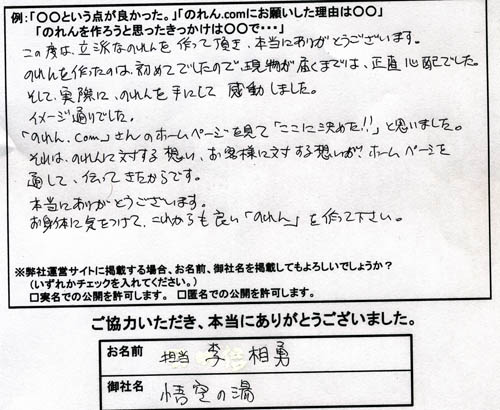 例:「〇〇という点が良かった。」「のれん.comにお願いした理由は〇〇」
「のれんを作ろうと思ったきっかけは〇〇で・・・」
この度は、立派なのれんを作って頂き、本当にありがとうございます。
のれんを作ったのは、初めてでしたので、現物が届くまでは、正直心配でした。
そして、実際に、のれんを手にして感動しました。
イメージ通りでした。
「のれん.com」さんのホームページを見て「ここに決めた!!」と思いました。
それは、のれんに対する想い、お客様に対する想いが、ホームページを
通して、伝ってきたからです。
本当にありがとうございます。
お身体に気をつけて、これからも良い「のれん」を作って下さい。
※弊社運営サイトに掲載する場合、お名前、御社名を掲載してもよろしいでしょうか?
(いずれかチェックを入れてください。)
□実名での公開を許可します。 □匿名での公開を許可します。
ご協力いただき、本当にありがとうございました。
お名前 担当 李 相勇
御社名 悟空の湯